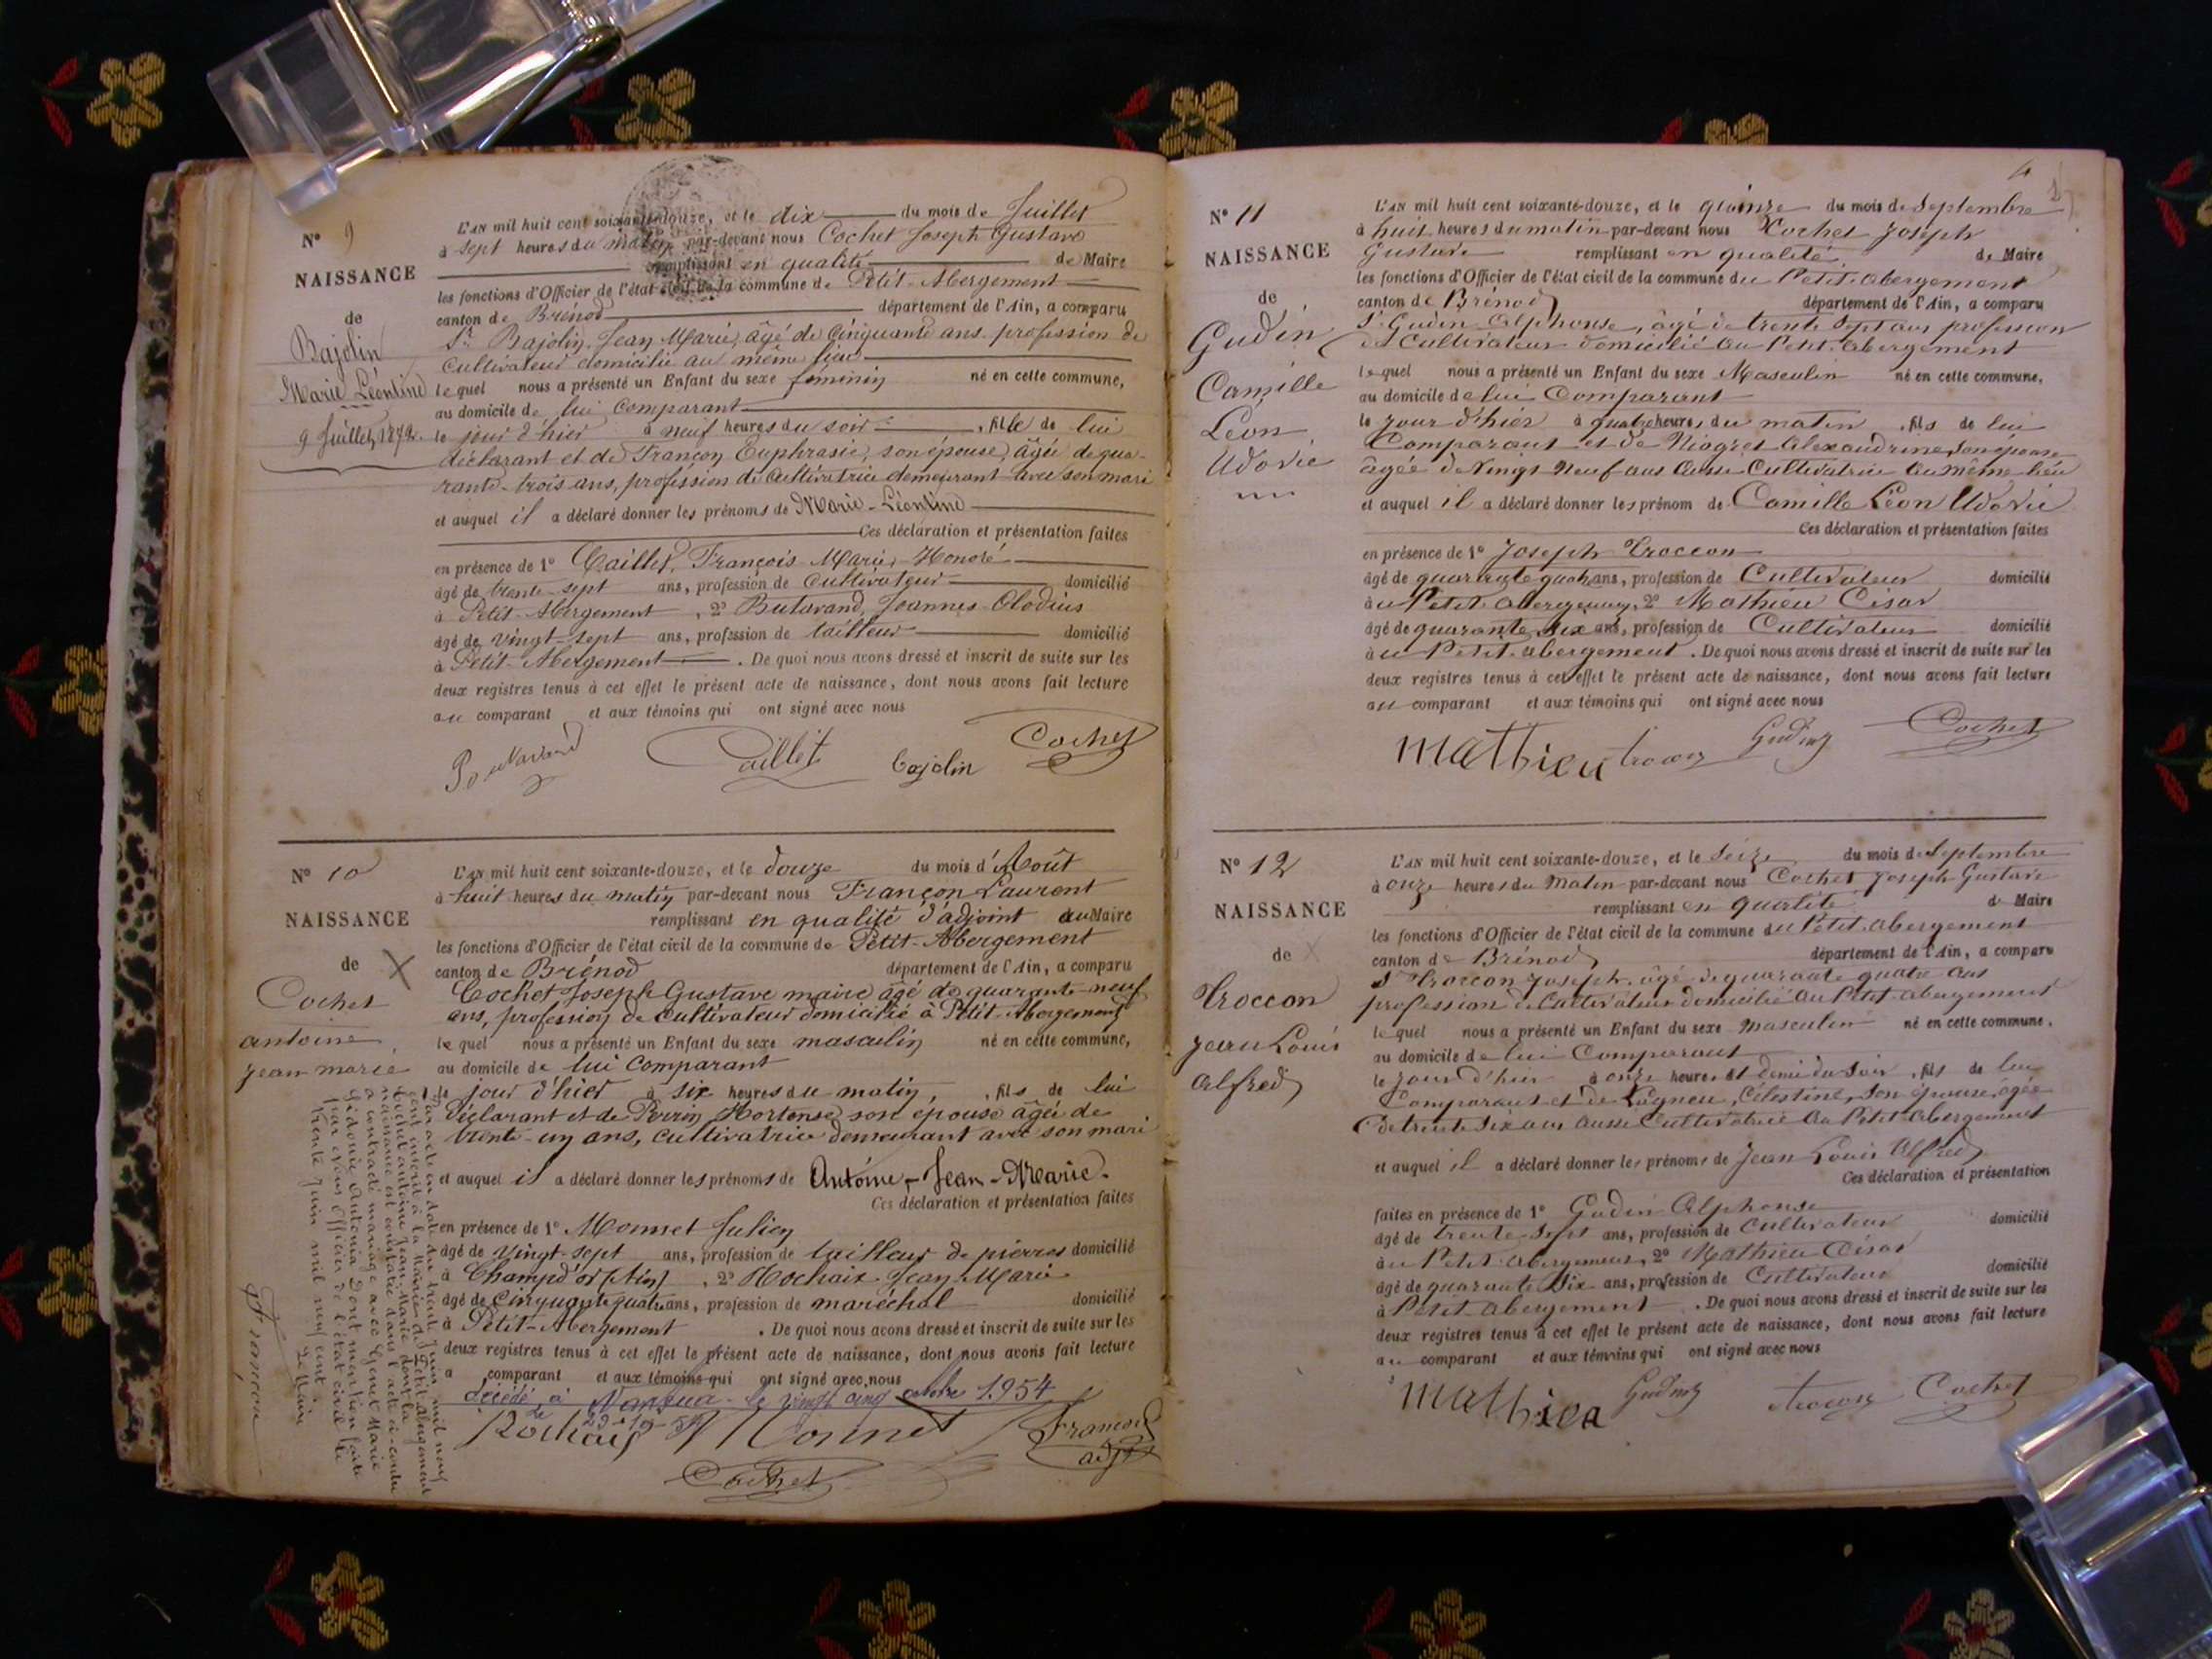 N° 9
NAISSANCE
de
Bajolin
Marie Léontine
9 Juillet 1872.
L'AN mil huit cent soixante-douze, et le dix du mois de Juillet
à sept heures du matin par-devant nous Cochet Joseph Gustave
remplissant en qualité de Maire
les fonctions d'Officier de l'état civil de la commune de Petit-Abergement
canton de Brénod département de l'Ain, a comparu
Sr Bajolin, Jean Marie, âgé de Cinquante ans, profession de
Cultivateur domicilié au même lieu
lequel nous a présenté un Enfant du sexe féminin né en cette commune,
au domicile de lui comparant
le jour d'hier à neuf heures du soir, fille de lui
déclarant et de Françon Euphrasie, son épouse, âgée de qua-
rante-trois ans, profession de Cultivatrice demeurant avec son mari
et auquel il a déclaré donner les prénoms de Marie-Léontine
Ces déclaration et présentation faites
en présence de 1° Caillet, François Marie Honoré
âgé de trente-sept ans, profession de Cultivateur domicilié
à Petit-Abergement, 2° Butavand, Joannes Clodius
âgé de vingt-sept ans, profession de tailleur domicilié
à Petit-Abergement. De quoi nous avons dressé et inscrit de suite sur les
deux registres tenus à cet effet le présent acte de naissance, dont nous avons fait lecture
au comparant et aux témoins qui ont signé avec nous
Caillet bajolin Cochet
N° 10
NAISSANCE
de X
Cochet
antoine,
jean marie
L'AN mil huit cent soixante-douze, et le douze du mois d'Août
à huit heures du matin par-devant nous Françon Laurent
remplissant en qualité d'adjoint au Maire
les fonctions d'Officier de l'état civil de la commune de Petit-Abergement
canton de Brénod département de l'Ain, a comparu
Cochet Joseph Gustave maire âgé de quarante-neuf
ans, profession de Cultivateur domicilié à Petit-Abergement
lequel nous a présenté un Enfant du sexe masculin né en cette commune,
au domicile de lui comparant
le jour d'hier à six heures du matin, fils de lui
déclarant et de Perrin Hortense son épouse âgée de
trente-un ans, cultivatrice demeurant avec son mari
et auquel il a déclaré donner les prénoms de Antoine-Jean-Marie.
Ces déclaration et présentation faites
en présence de 1° Monnet Julien
âgé de vingt-sept ans, profession de tailleur de pierres domicilié
à Champd'or (Ain), 2° Rochaix Jean Marie
âgé de Cinquante quatre ans, profession de maréchal domicilié
à Petit-Abergement. De quoi nous avons dressé et inscrit de suite sur les
deux registres tenus à cet effet le présent acte de naissance, dont nous avons fait lecture
a comparant et aux témoins qui ont signé avec nous
décédé à Nantua le vingt cinq octobre 1954
Rochaix Monnet Françon
adjt
Cochet
Par acte en date du trente Juin mil neuf
cent inscrit à la Mairie de Petit Abergement
Cochet antoine Jean Marie dont la
naissance est constatée dans l'acte ci-contre
a contracté mariage avec Marie
Sidonie Antonia Dont mention faite
par Nous Officier de l'état civil le
trente Juin mil neuf cent
Le Maire
Françon
N° 11
NAISSANCE
de
Gudin
Camille
Léon
Udovie
L'AN mil huit cent soixante-douze, et le quinze du mois de Septembre
à huit heures du matin par-devant nous Cochet Joseph
Gustave remplissant en qualité de Maire
les fonctions d'Officier de l'état civil de la commune du Petit-abergement
canton de Brénod département de l'Ain, a comparu
Sr Gudin Alphonse, âgé de trente Sept ans profession
de Cultivateur domicilié au Petit-abergement
lequel nous a présenté un Enfant du sexe Masculin né en cette commune,
au domicile de lui Comparant
le jour d'hier à quatre heures du matin, fils de lui
Comparant et de Niogret Alexandrine, son épouse
âgée de Vingt Neuf ans aussi Cultivatrice au même lieu
et auquel il a déclaré donner les prénom de Camille Léon Udovie
Ces déclaration et présentation faites
en présence de 1° Joseph Troccon
âgé de quarante quatre ans, profession de Cultivateur domicilié
au Petit abergement, 2° Mathieu César
âgé de quarante Six ans, profession de Cultivateur domicilié
au Petit-abergement. De quoi nous avons dressé et inscrit de suite sur les
deux registres tenus à cet effet le présent acte de naissance, dont nous avons fait lecture
au comparant et aux témoins qui ont signé avec nous
mathieu Gudin Cochet
N° 12
NAISSANCE
de X
Troccon
Jean Louis
alfred
L'AN mil huit cent soixante-douze, et le Seize du mois de Septembre
à onze heures du Matin par-devant nous Cochet Joseph Gustave
remplissant en qualité de Maire
les fonctions d'Officier de l'état civil de la commune du Petit-abergement
canton de Brénod département de l'Ain, a comparu
Sr Troccon Joseph, âgé de quarante quatre ans
profession de Cultivateur domicilié au Petit-abergement
lequel nous a présenté un Enfant du sexe masculin né en cette commune,
au domicile de lui Comparant
le jour d'hier à onze heures et demie du Soir, fils de lui
Comparant et de Lagneu, Célestine, Son épouse, âgée
de trente Six ans aussi Cultivatrice au Petit-abergement
et auquel il a déclaré donner les prénoms de Jean Louis Alfred
Ces déclaration et présentation
faites en présence de 1° Gudin Alphonse
âgé de trente Sept ans, profession de Cultivateur domicilié
au Petit-abergement, 2° Mathieu César
âgé de quarante Six ans, profession de Cultivateur domicilié
à Petit abergement. De quoi nous avons dressé et inscrit de suite sur les
deux registres tenus à cet effet le présent acte de naissance, dont nous avons fait lecture
au comparant et aux témoins qui ont signé avec nous
mathieu Gudin Cochet